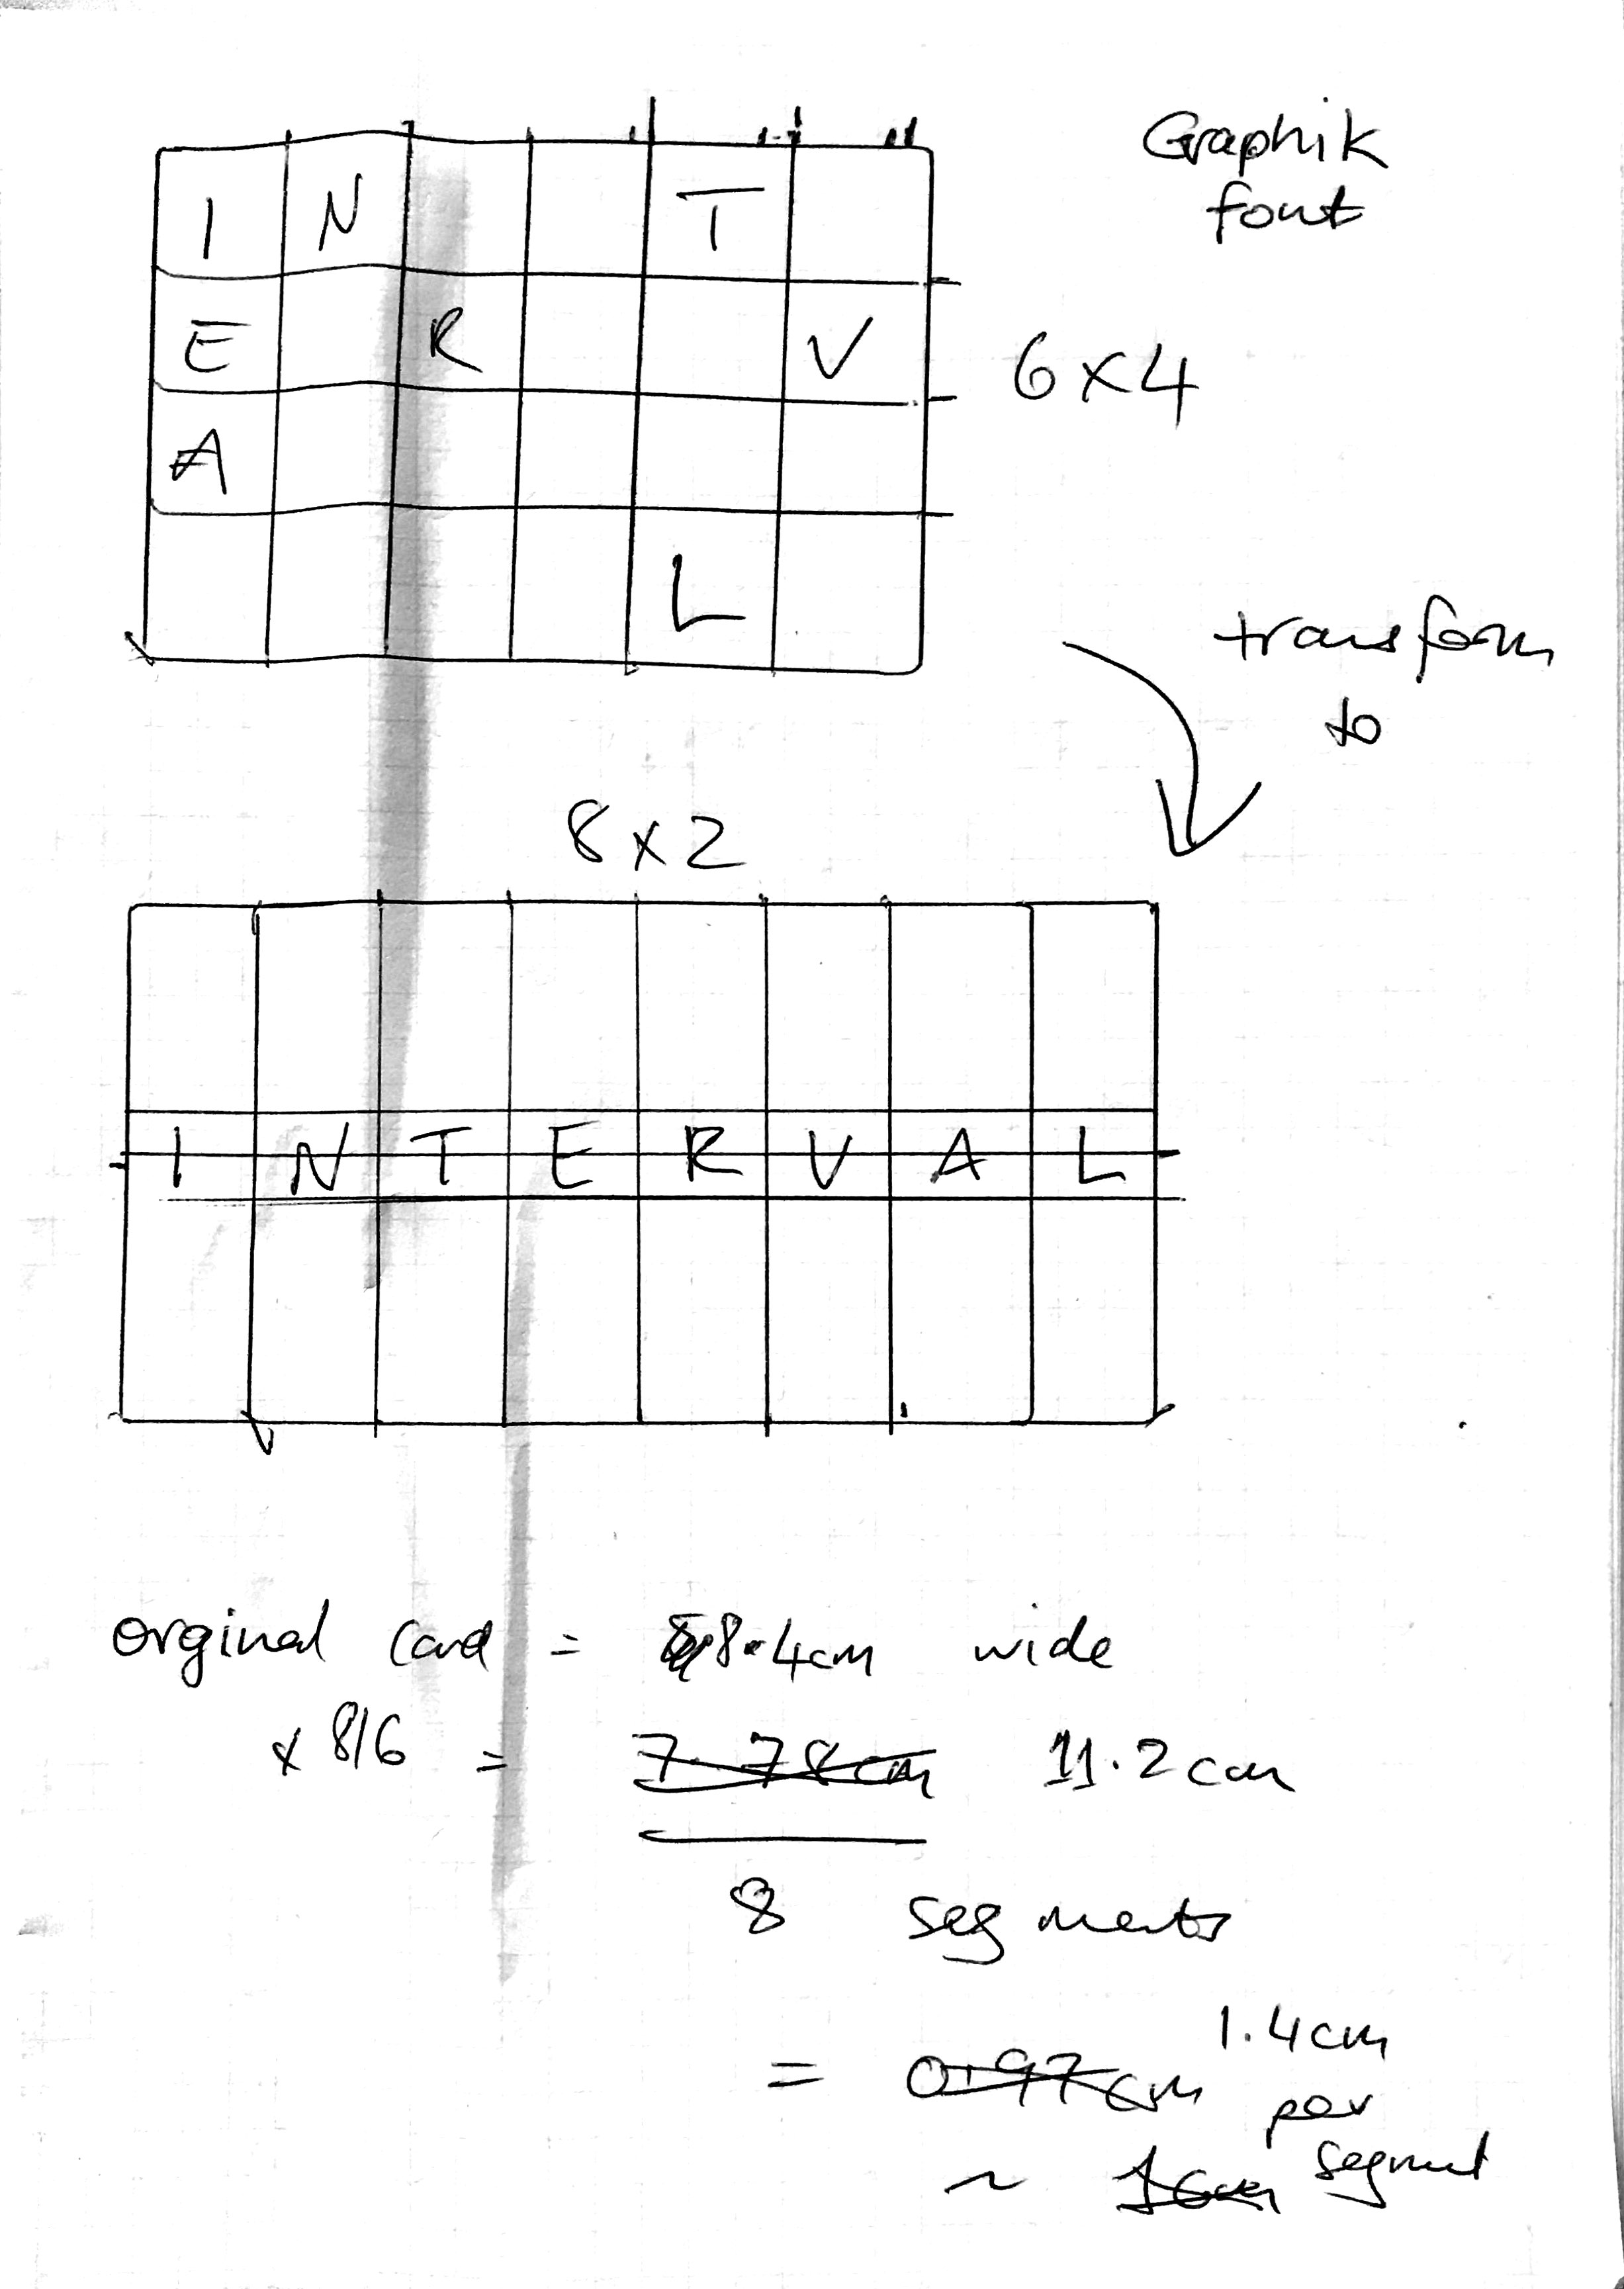 Graphik
font
I N T
E R V
6x4
A
L
transform
to
8x2
I N T E R V A L
orginal card = 8.4cm wide
x 8/6 = 7.78cm 11.2cm
8 segments
1.4cm
= 0.97cm per
~ 1cm segment